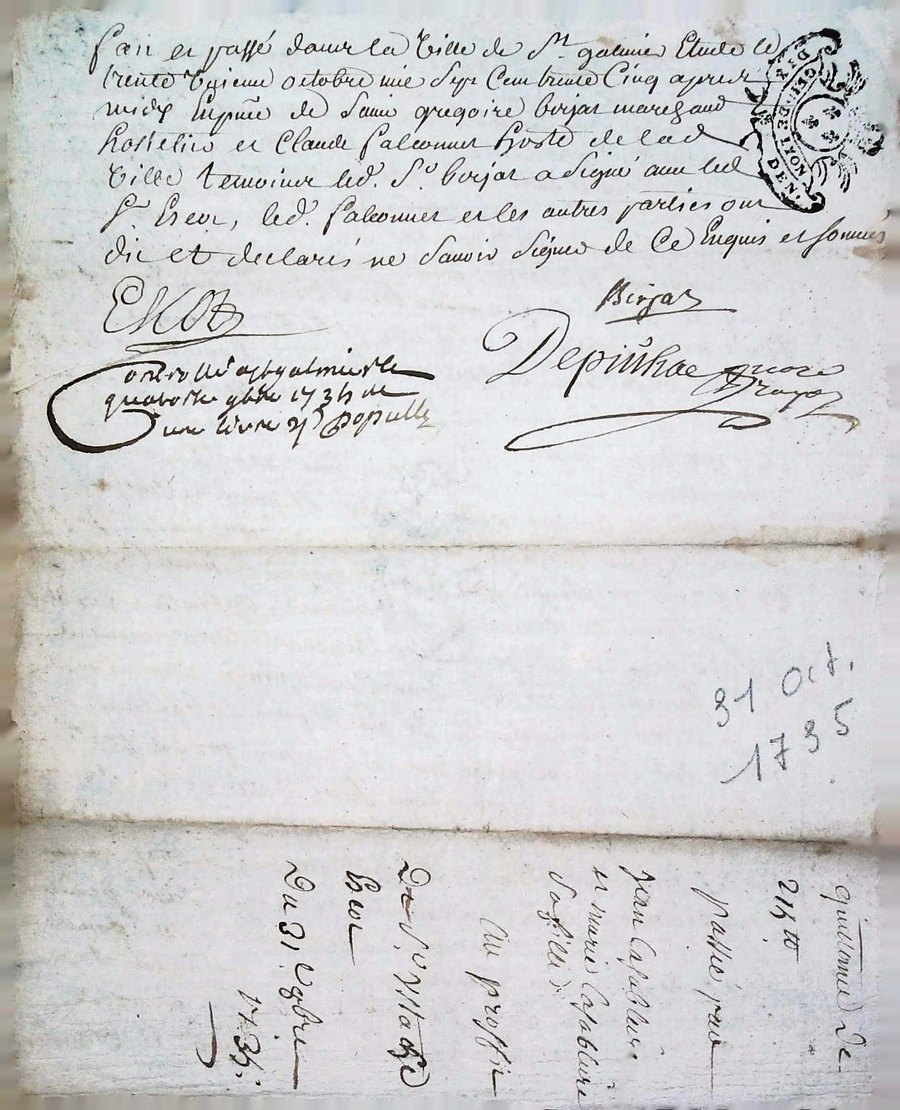 fait et passé dans la Ville de St galmier Etude le
trente Unieme octobre mil Sept Cent trente Cinq apres
midy En pñce de Sieur gregoire borjat marchand
hostelier et Claude falconnet hoste de lad
Ville temoins led. Sr borjat a Signé avec led
Sr Escot, led. falconnet et les autres parties ont
dit et declarés ne Savoir Signer de Ce Enquis et sommés
DEN.
GEN. DE LYON
Escot
Borjat
Controllé a st galmier le
quatorze 9bre 1735
une livre
31 Oct.
1735
quittance de
215 tt
passé par
Jean
et marie
Sa fille
Au proffit
De Sr
Escot
Du 31. 8bre
1735.